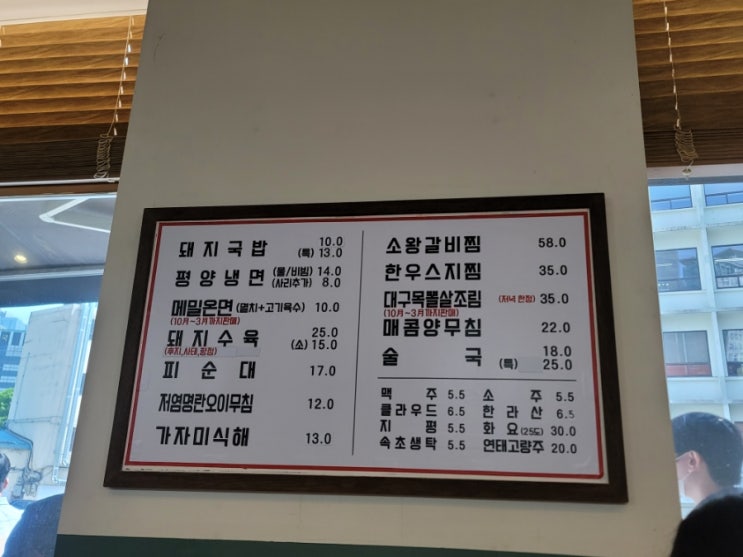 돼지국밥 10.0
(특) 13.0
평양냉면 (물/비빔) 14.0
(사리추가) 8.0
메밀온면 (멸치+고기육수) 10.0
(10月~3月까지판매)
돼지수육 25.0
(후지,사태,항정) (소) 15.0
피순대 17.0
저염명란오이무침 12.0
가자미식해 13.0
소왕갈비찜 58.0
한우스지찜 35.0
대구목뽈살조림 (저녁 한정) 35.0
(10月~3月까지판매)
매콤양무침 22.0
술국 18.0
(특) 25.0
맥주 5.5 소주 5.5
클라우드 6.5 한라산 6.5
지평 5.5 화요 (25도) 30.0
속초생탁 5.5 연태고량주 20.0